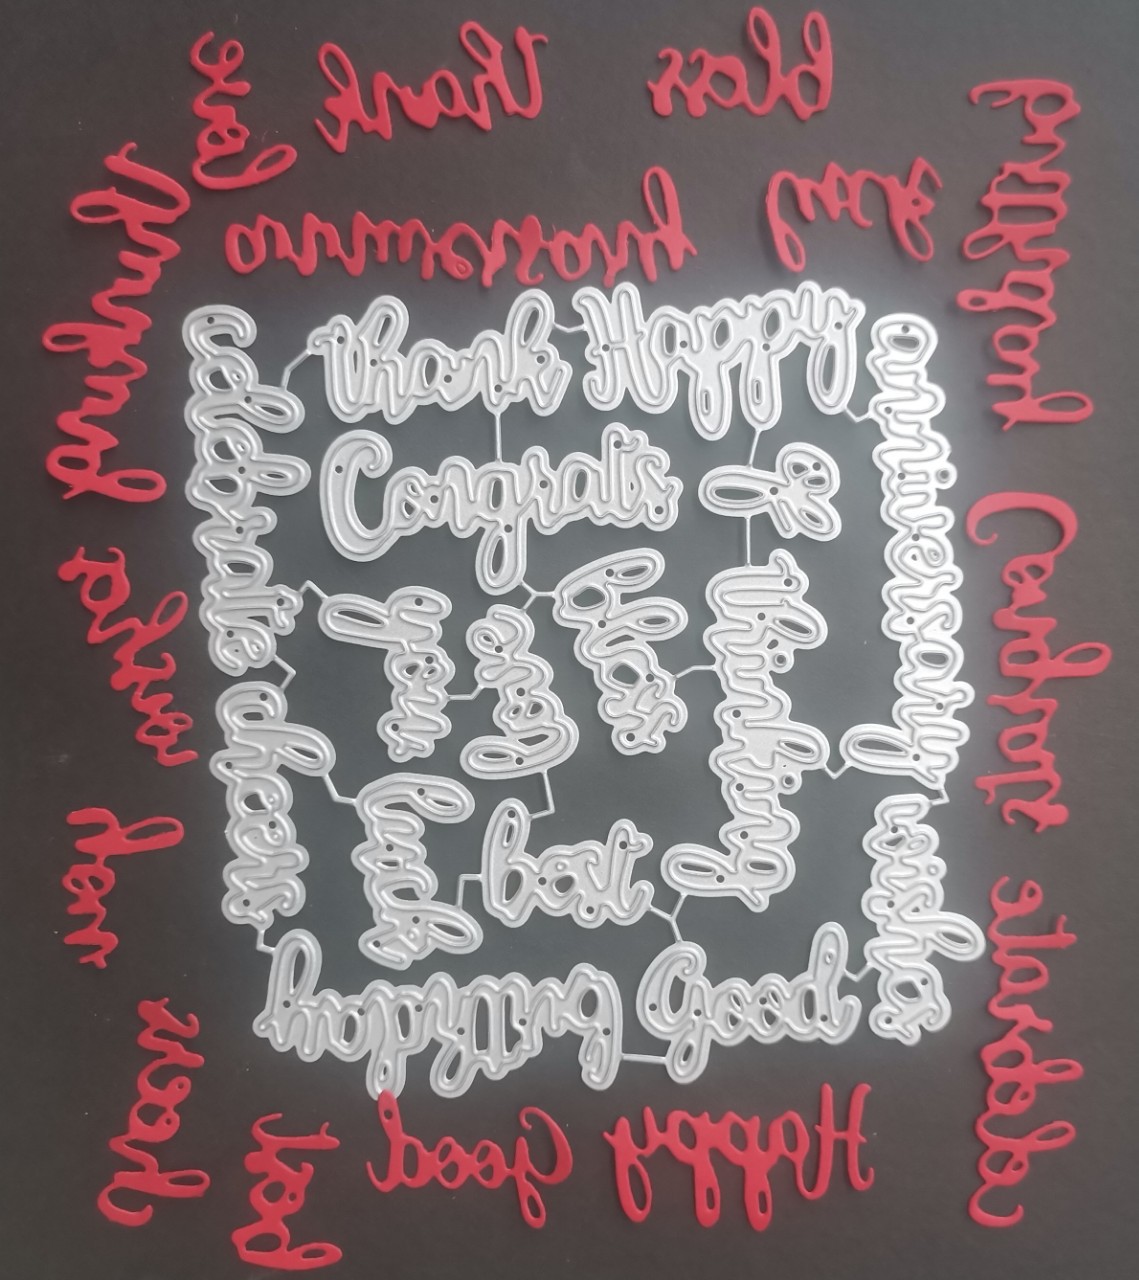 thank
bless
thinking
anniversary
birthday
Congrats
celebrate
wishes
cheers
best
Good
Happy
thank
Happy
anniversary
celebrate
Congrats
bless
you
thinking
cheers
luck
best
wishes
birthday
Good